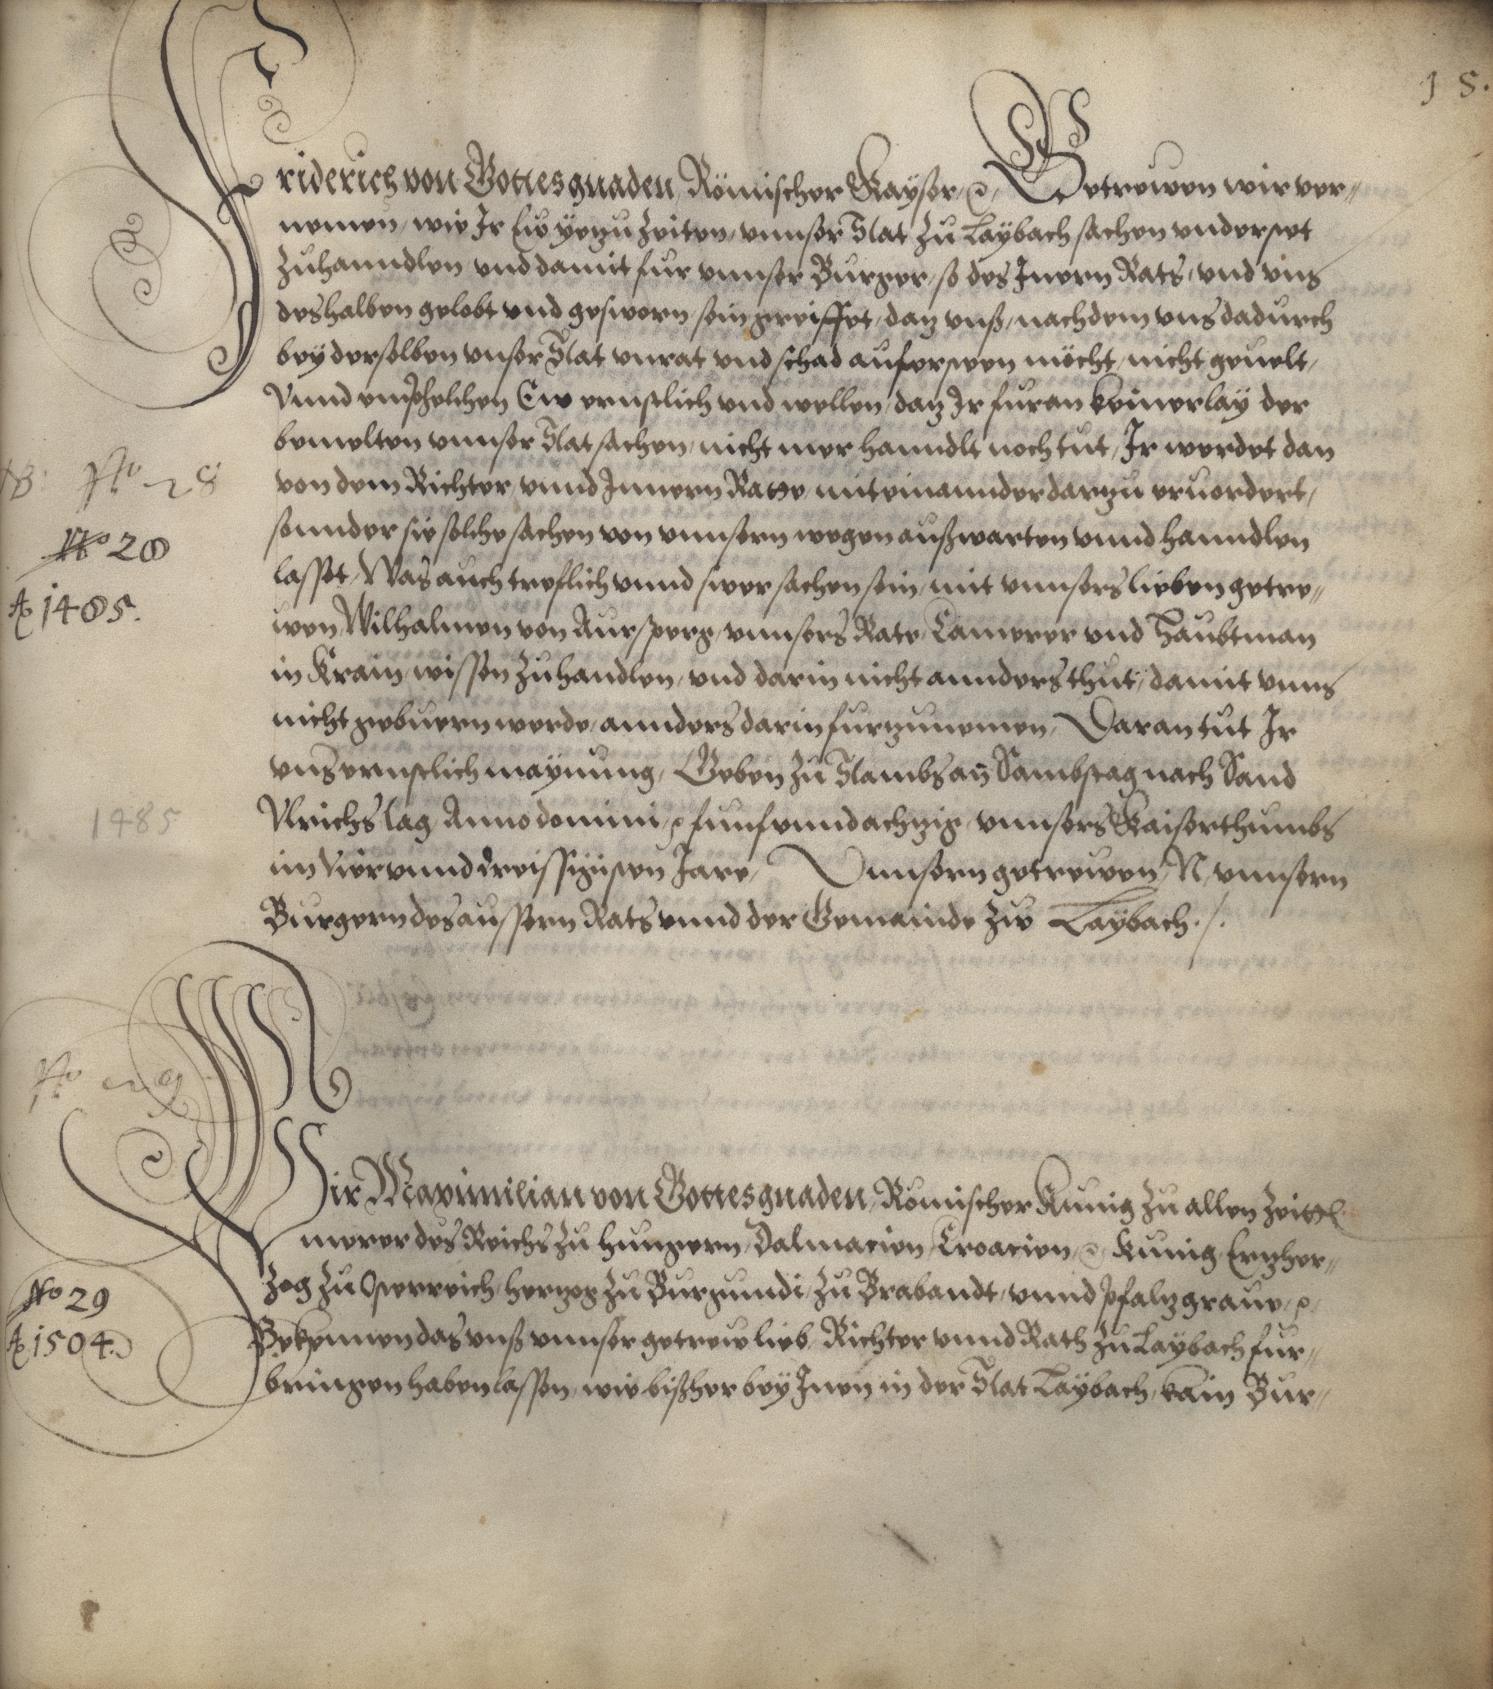 18.
Friderich von Gottes gnaden, Römischer Kayser, etc, Getrewen wir ver⸗
nemen, wie Ir Euch yetzu Zeiten, vnnser Stat zu Laybach sachen vnderstet
zuhanndlen vnd damit fur vnnser Burger, so des Innern Rats, vnd vns
deshalben gelobt vnd gesworn sein greiffet, daz vnß, nachdem vns dadurch
bey derselben vnser Stat vnrat vnd schad aufersteen möcht, nicht geuelt,
Vnnd emphelchen Ew ernstlich vnd wellen, daz Ir furan keinerlay der
bemelten vnnser Stat sachen, nicht mer hanndlt noch tut, Ir werdet dan
von dem Richter, vnnd Innern Rate, miteinannder darzu eruordert,
sonnder sie solche sachen von vnnsern wegen außwarten vnnd hanndlen
lasset, Was auch treflich vnnd swer sachen sein, mit vnnsers lieben getre⸗
wen Wilhalmen von Aursperg, vnnsers Rats, Camerer vnd Haubtman
in Krain, wissen zuhandlen, vnd darin nicht annders thut, damit vnns
nicht gebuern werde, annders darin furzunemen, Daran tut Ir
vns ernstlich maynung, Geben zu Stambs an Sambstag nach Sand
Vlrichs tag, Anno domini, etc funfvnndachzig, vnnsers Kaiserthumbs
im Vier vnnd dreissigisten Jare, Vnnsern getrewen, N, vnnsern
Burgern des aussern Rats vnnd der Gemainde zw Laybach ./.
No 28
No 28
Ao 1485.
1485
No 29
Wir Maximilian von Gottes gnaden, Römischer Kunig zu allen Zeitten
merer des Reichs zu Hungern, Dalmacien, Croacien, etc, Kunig, Ertzher⸗
zog zu Osterreich, Hertzog zu Burgundi, zu Brabandt, vnnd Pfaltzgraue, etc,
Bekennen das vnß vnnser getrew lieb, Richter vnnd Rath zu Laybach fur⸗
bringen haben lassen, wie bißher bey Inen in der Stat Laybach, kain Bur⸗
No 29
Ao 1504.